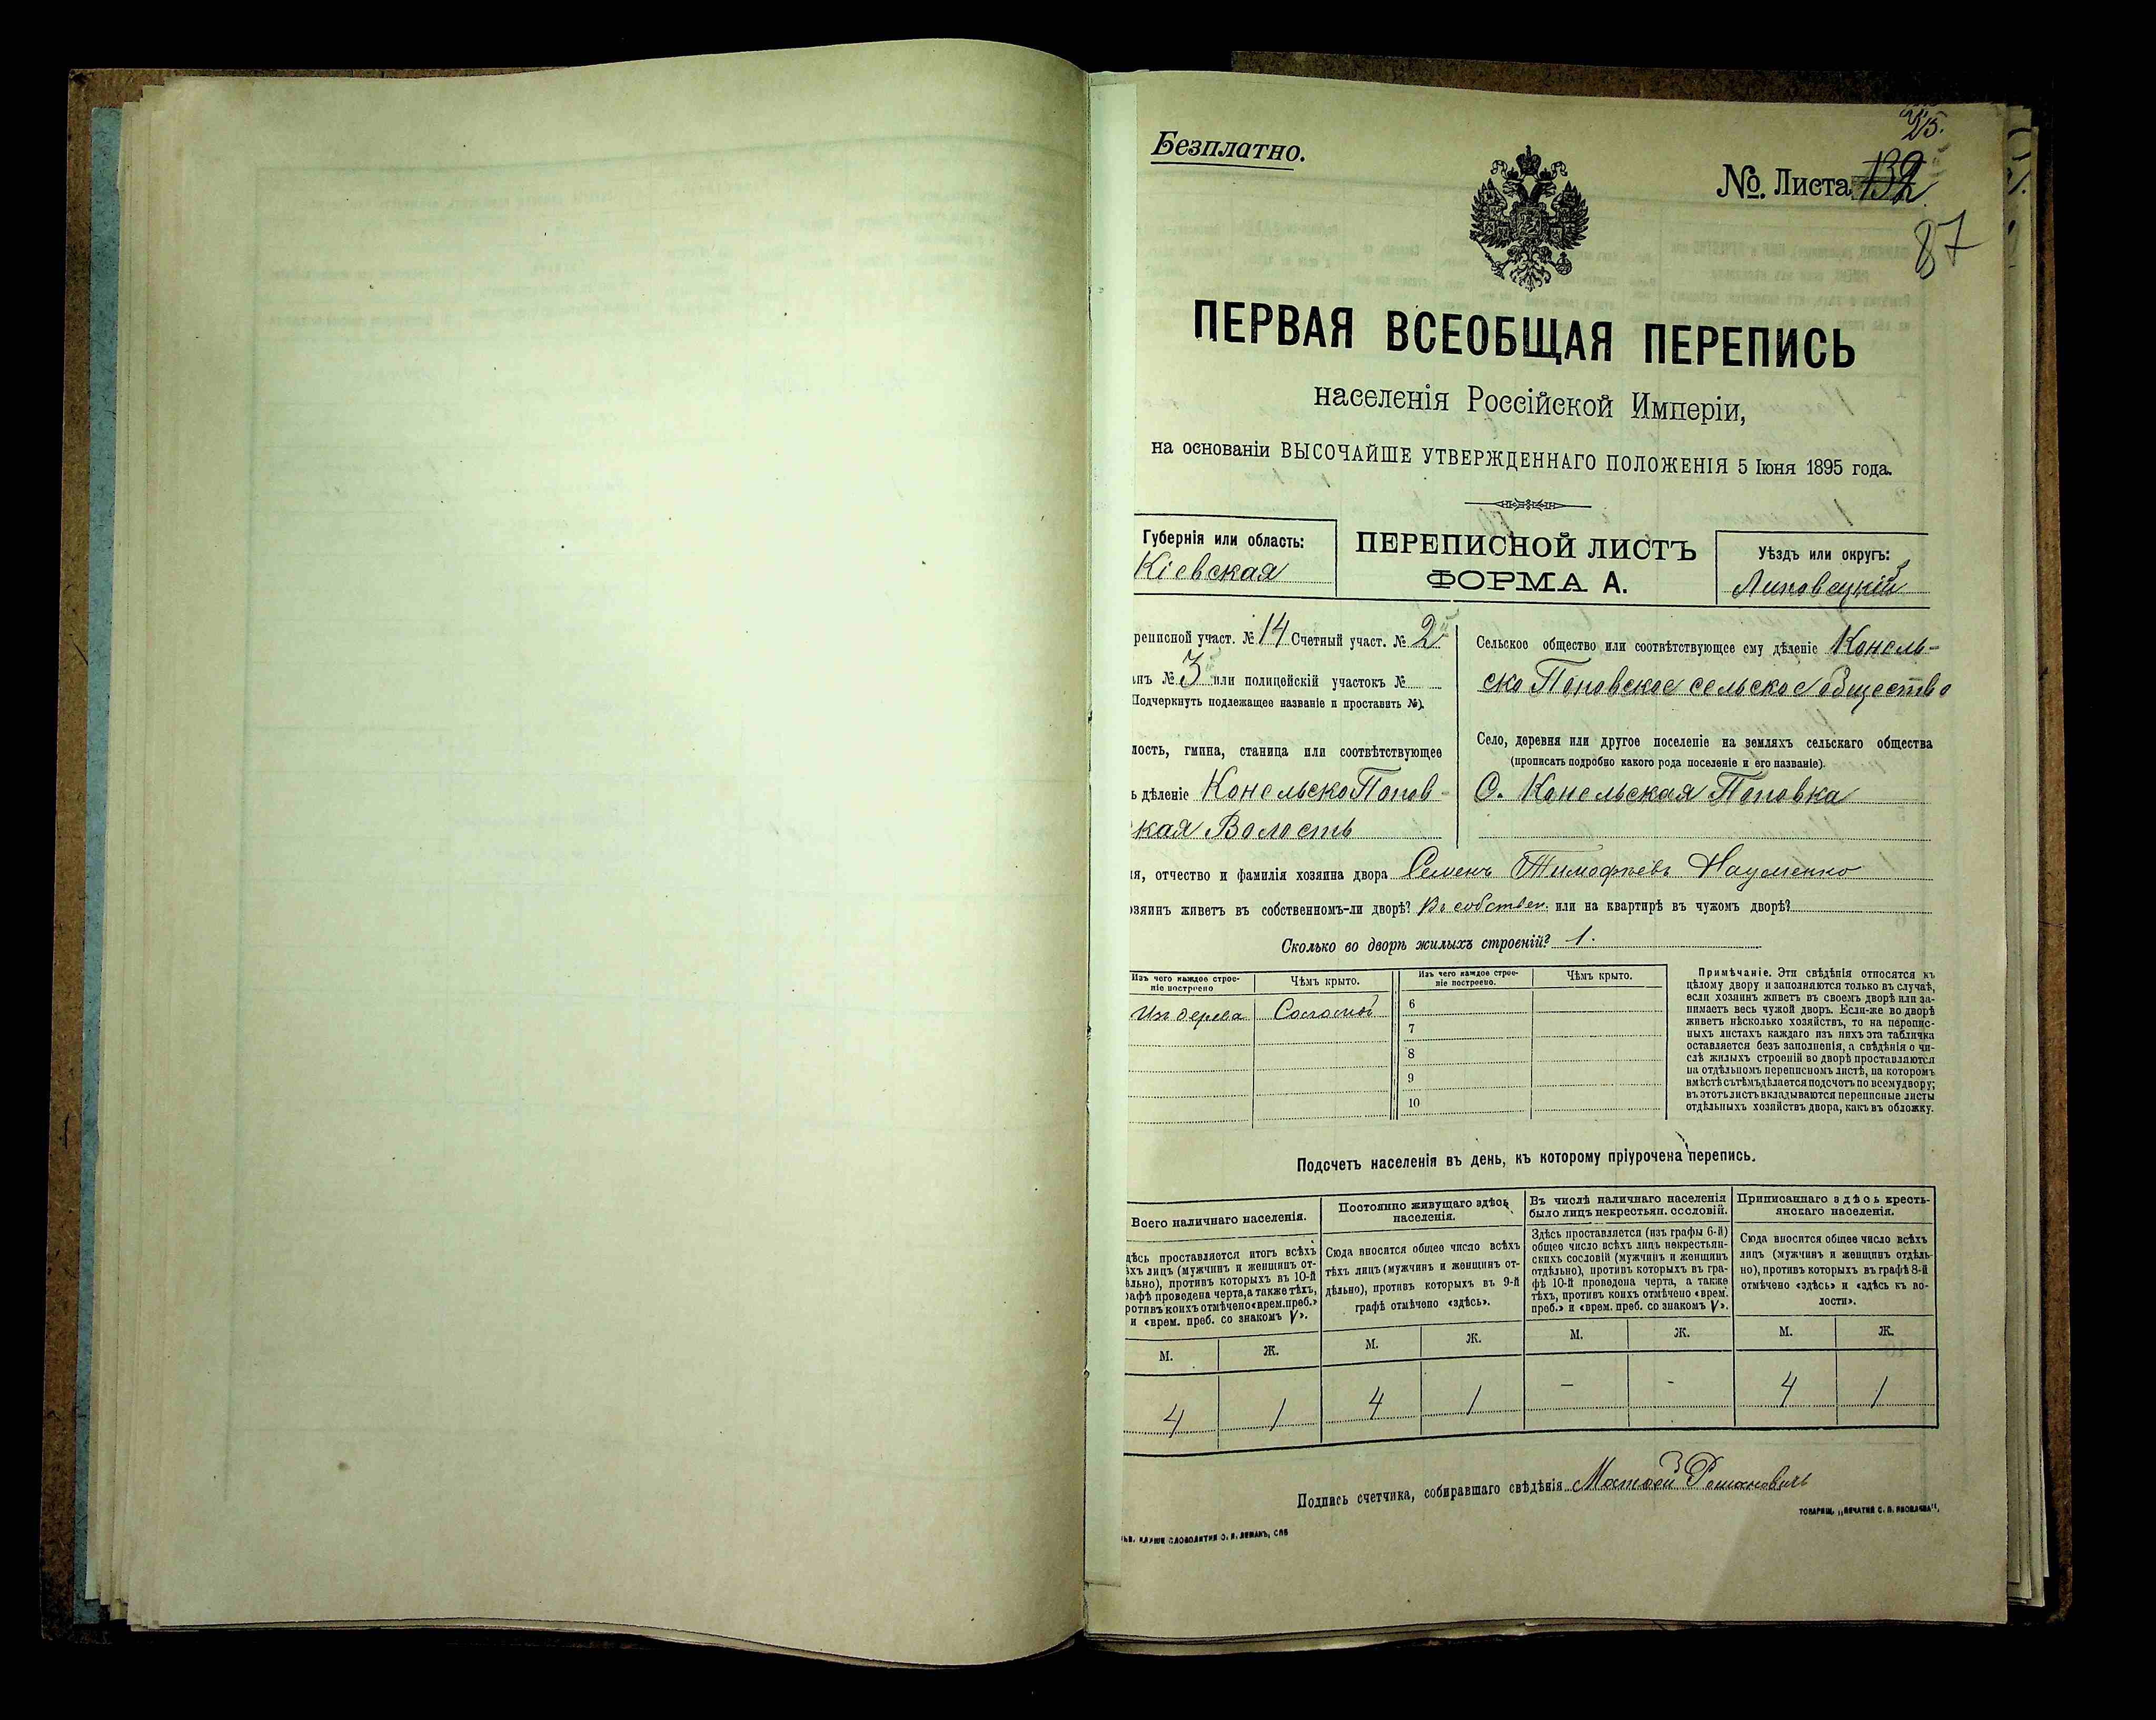 25.
Безплатно.
№ Листа 132
87
ПЕРВАЯ ВСЕОБЩАЯ ПЕРЕПИСЬ
населенія Россійской Имперіи,
на основаніи ВЫСОЧАЙШЕ УТВЕРЖДЕННАГО ПОЛОЖЕНІЯ 5 Іюня 1895 года.
Губернія или область:
Кіевская
ПЕРЕПИСНОЙ ЛИСТЪ
ФОРМА А.
Уѣздъ или округъ:
Липовецкій
реписной участ. № 14 Счетный участ. № 2
анъ № 3 или полицейскій участокъ №
Подчеркнуть подлежащее названіе и проставить №).
лость, гмина, станица или соотвѣтствующее
ь дѣленіе Конельско Попов-
ская Волость
Сельское общество или соотвѣтствующее ему дѣленіе Конель-
ско Поповское сельское общество
Село, деревня или другое поселеніе на земляхъ сельскаго общества
(прописать подробно какого рода поселеніе и его названіе).
С. Конельская Поповка
ія, отчество и фамилія хозяина двора Семенъ Тимофѣевъ Науменко
озяинъ живетъ въ собственномъ-ли дворѣ? Въ собствен. или на квартирѣ въ чужомъ дворѣ?
Сколько во дворѣ жилыхъ строеній? 1.
Изъ чего каждое строе-
ніе построено
Чѣмъ крыто.
Изъ чего каждое строе-
ніе построено.
Чѣмъ крыто.
Изъ дерева Соломой
6
7
8
9
10
Примѣчаніе. Эти свѣдѣнія относятся къ
цѣлому двору и заполняются только въ случаѣ,
если хозяинъ живетъ въ своемъ дворѣ или за-
нимаетъ весь чужой дворъ. Если-же во дворѣ
живетъ нѣсколько хозяйствъ, то на перепис-
ныхъ листахъ каждаго изъ нихъ эта табличка
оставляется безъ заполненія, а свѣдѣнія о чи-
слѣ жилыхъ строеній во дворѣ проставляются
на отдѣльномъ переписномъ листѣ, на которомъ
вмѣстѣ съ тѣмъ дѣлается подсчетъ по всему двору;
въ этотъ листъ вкладываются переписные листы
отдѣльныхъ хозяйствъ двора, какъ въ обложку.
Подсчетъ населенія въ день, къ которому пріурочена перепись.
Всего наличнаго населенія.
Постоянно живущаго здѣсь
населенія.
Въ числѣ наличнаго населенія
было лицъ некрестьян. сословій.
Приписаннаго здѣсь кресть-
янскаго населенія.
дѣсь проставляется итогъ всѣхъ
ѣхъ лицъ (мужчинъ и женщинъ от-
ѣльно), противъ которыхъ въ 10-й
рафѣ проведена черта, а также тѣхъ,
ротивъ коихъ отмѣчено «врем. преб.»
и «врем. преб. со знакомъ V».
Сюда вносится общее число всѣхъ
тѣхъ лицъ (мужчинъ и женщинъ от-
дѣльно), противъ которыхъ въ 9-й
графѣ отмѣчено «здѣсь».
Здѣсь проставляется (изъ графы 6-й)
общее число всѣхъ лицъ некрестьян-
скихъ сословій (мужчинъ и женщинъ
отдѣльно), противъ которыхъ въ гра-
фѣ 10-й проведена черта, а также
тѣхъ, противъ коихъ отмѣчено «врем.
преб.» и «врем. преб. со знакомъ V».
Сюда вносится общее число всѣхъ
лицъ (мужчинъ и женщинъ отдѣль-
но), противъ которыхъ въ графѣ 8-й
отмѣчено «здѣсь» и «здѣсь къ во-
лости».
М. Ж. М. Ж. М. Ж. М. Ж.
4 1 4 1 – - 4 1
Подпись счетчика, собиравшаго свѣдѣнія Матвей Романовичъ
ТОВАРИЩ. „ПЕЧАТНЯ С. П. ЯКОВЛЕВА“.
СЛОВОЛИТНЯ О. И. ЛЕМАНЪ, СПБ